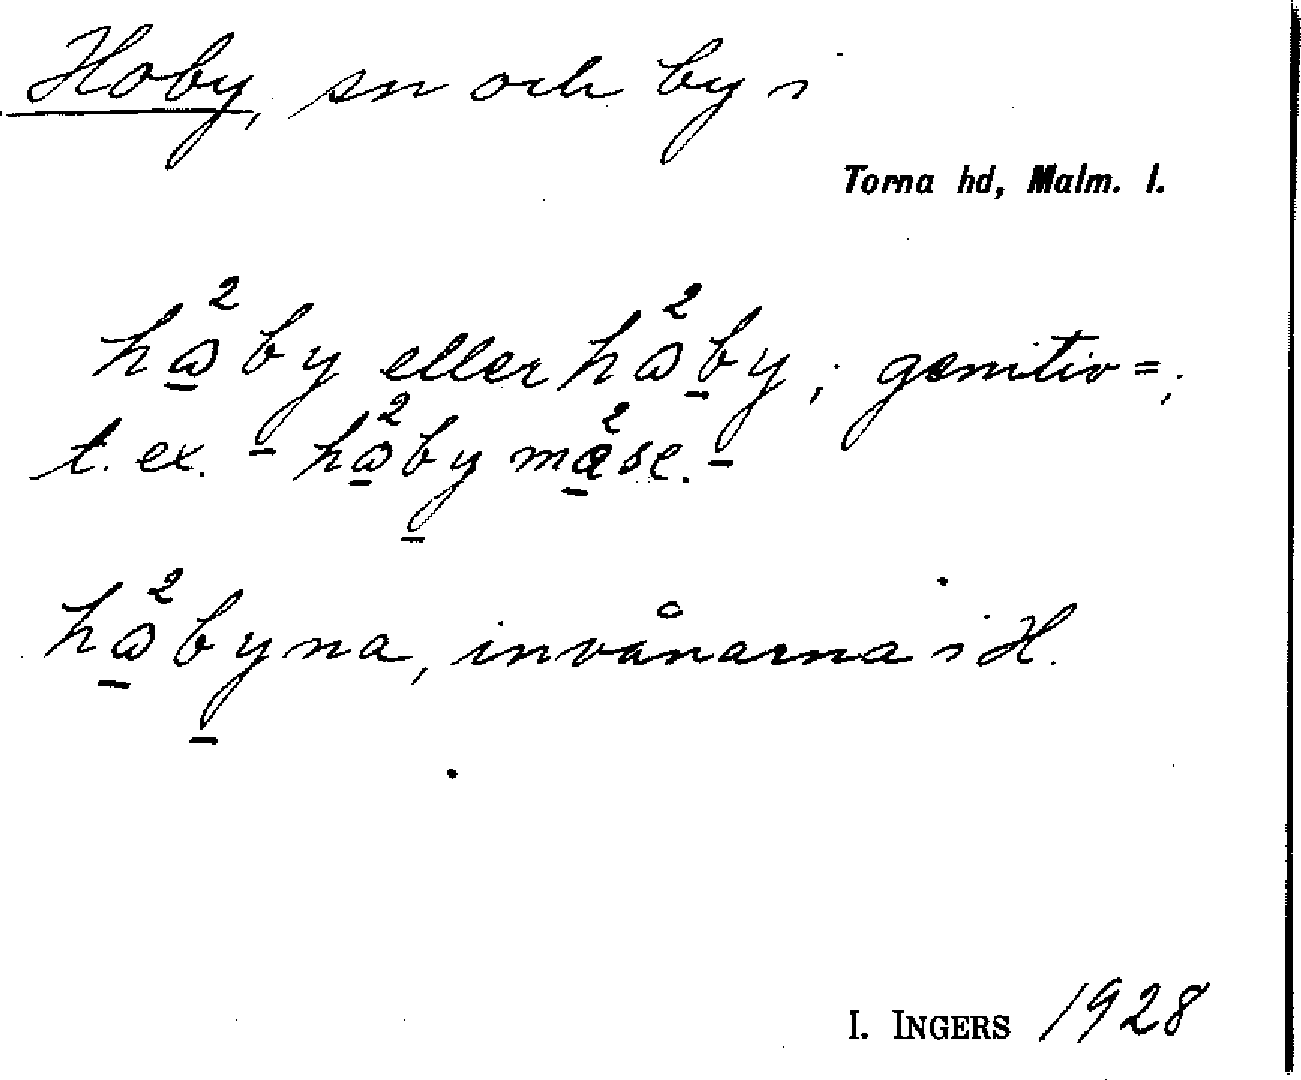 Hoby, sn och by i
Torna hd, Malm. l.
hω̱²by eller hω²ḇy; genitiv =;
t. ex. - hω̱²by̱ ma̱²se. -
hω̱²by̱na, invånarna i H.
I. INGERS 1928